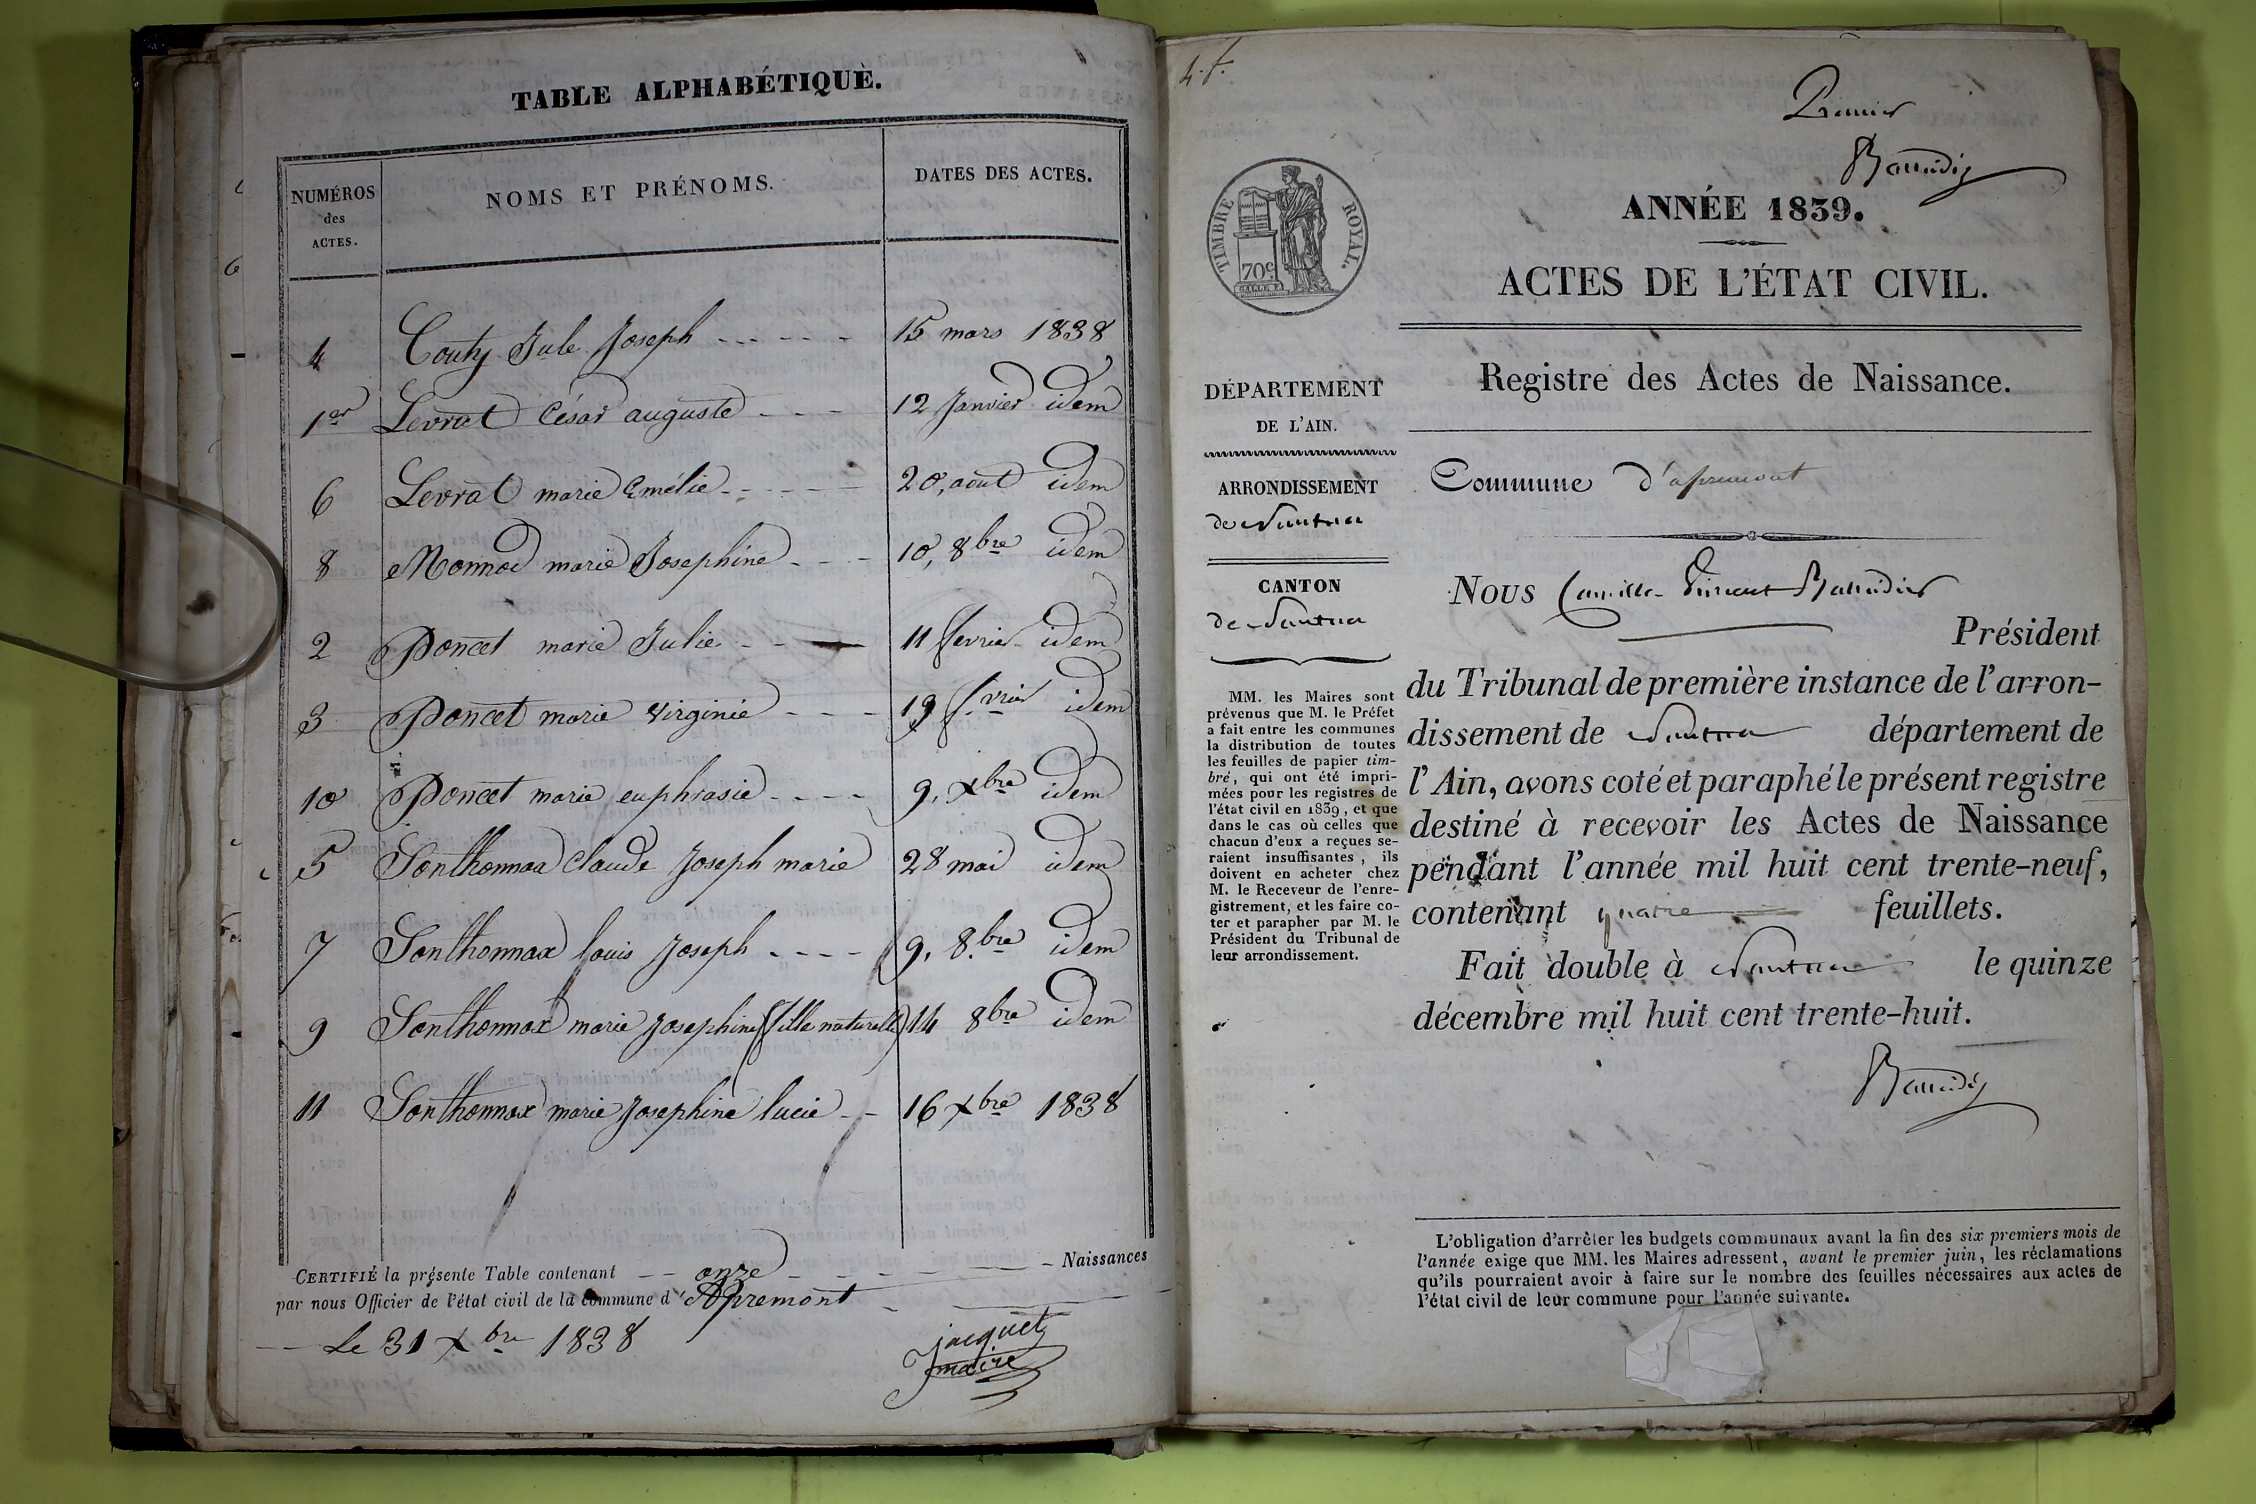 TABLE ALPHABÉTIQUE.
NUMÉROS
des
ACTES.
NOMS ET PRÉNOMS.
DATES DES ACTES.
4 Couty Jule Joseph 15 mars 1838
1er Levrat César auguste 12 Janvier idem
6 Levrat marie Emélie 20, aout idem
8 Monnod marie Josephine 10, 8bre idem
2 Poncet marie Julie 11 fevrier idem
3 Poncet marie Virginie 19 fvrier idem
10 Poncet marie euphrasie 9, Xbre idem
5 Sonthonnax Claude Joseph marie 28 mai idem
7 Sonthonnax louis Joseph 9, 8bre idem
9 Sonthonnax marie Josephine (fille naturelle) 14 8bre idem
11 Sonthonnax marie Josephine lucie 16 Xbre 1838
CERTIFIÉ la présente Table contenant onze Naissances
par nous Officier de l'état civil de la commune d'Apremont
Le 31 Xbre 1838
jacquet
maire
4. f.
Premier
ANNÉE 1839.
ACTES DE L'ÉTAT CIVIL.
TIMBRE ROYAL.
70c
Registre des Actes de Naissance.
DÉPARTEMENT
DE L'AIN.
ARRONDISSEMENT
de Nantua
CANTON
de Nantua
MM. les Maires sont
prévenus que M. le Préfet
a fait entre les communes
la distribution de toutes
les feuilles de papier tim-
bré, qui ont été impri-
mées pour les registres de
l'état civil en 1839, et que
dans le cas où celles que
chacun d'eux a reçues se-
raient insuffisantes, ils
doivent en acheter chez
M. le Receveur de l'enre-
gistrement, et les faire co-
ter et parapher par M. le
Président du Tribunal de
leur arrondissement.
Commune d'apremont
Nous Camille Vincent
Président
du Tribunal de première instance de l'arron-
dissement de Nantua département de
l'Ain, avons coté et paraphé le présent registre
destiné à recevoir les Actes de Naissance
pendant l'année mil huit cent trente-neuf,
contenant quatre feuillets.
Fait double à Nantua le quinze
décembre mil huit cent trente-huit.
L'obligation d'arrêter les budgets communaux avant la fin des six premiers mois de
l'année exige que MM. les Maires adressent, avant le premier juin, les réclamations
qu'ils pourraient avoir à faire sur le nombre des feuilles nécessaires aux actes de
l'état civil de leur commune pour l'année suivante.